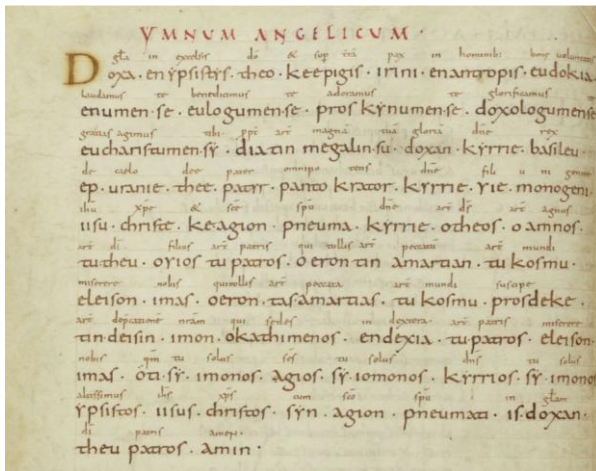 YMNUM ANGELICUM ·
gla in excelsis do & sup tra pax in hominib: bone voluntatis
Doxa · en ypsistys · theo · keepigis · irini · enantropis · eudokia ·
laudamus te benedicimus te adoramus te glorificamus
enumen·se · eulogumen·se · pros kynumen·se · doxologumense
gratias agimus tibi ppt art magna tua gloria dne rex
eucharistumen·sy · diatin megalin·su · doxan · kyrrie · basileu ·
de caelo dee pater omnipo tens dne fili u ni genite
ep · uranie · thee · patyr · panto krator · kyrrie · yie · monogeni ·
ihu xpe & sce spu dne art ds art agnus
iisu · christe · keagion · pneuma · kyrrie · otheos · o amnos ·
art di filius art patris qui tollis art peccata art mundi
tu·theu · oyios · tu patros · o eron tin amartian · tu kosmu ·
miserere nobis qui tollis art peccata art mundi suscipe
eleison · imas · oeron · tasamartias · tu kosmu · prosdeke ·
art depcatione nram qui sedes in dextera art patris miserere
tin·deisin · imon · okathimenos · endexia · tu·patros · eleison ·
nobis qm tu solus scs tu solus dns tu solus
imas · oti·sy · imonos · agios · sy · iomonos · kyrrios · sy · imonos
altissimus ihs xps cum sco spu in gla
ypsistos · iisus · christos · syn · agion · pneumati · is·doxan ·
di patris amen
theu patros · amin ·